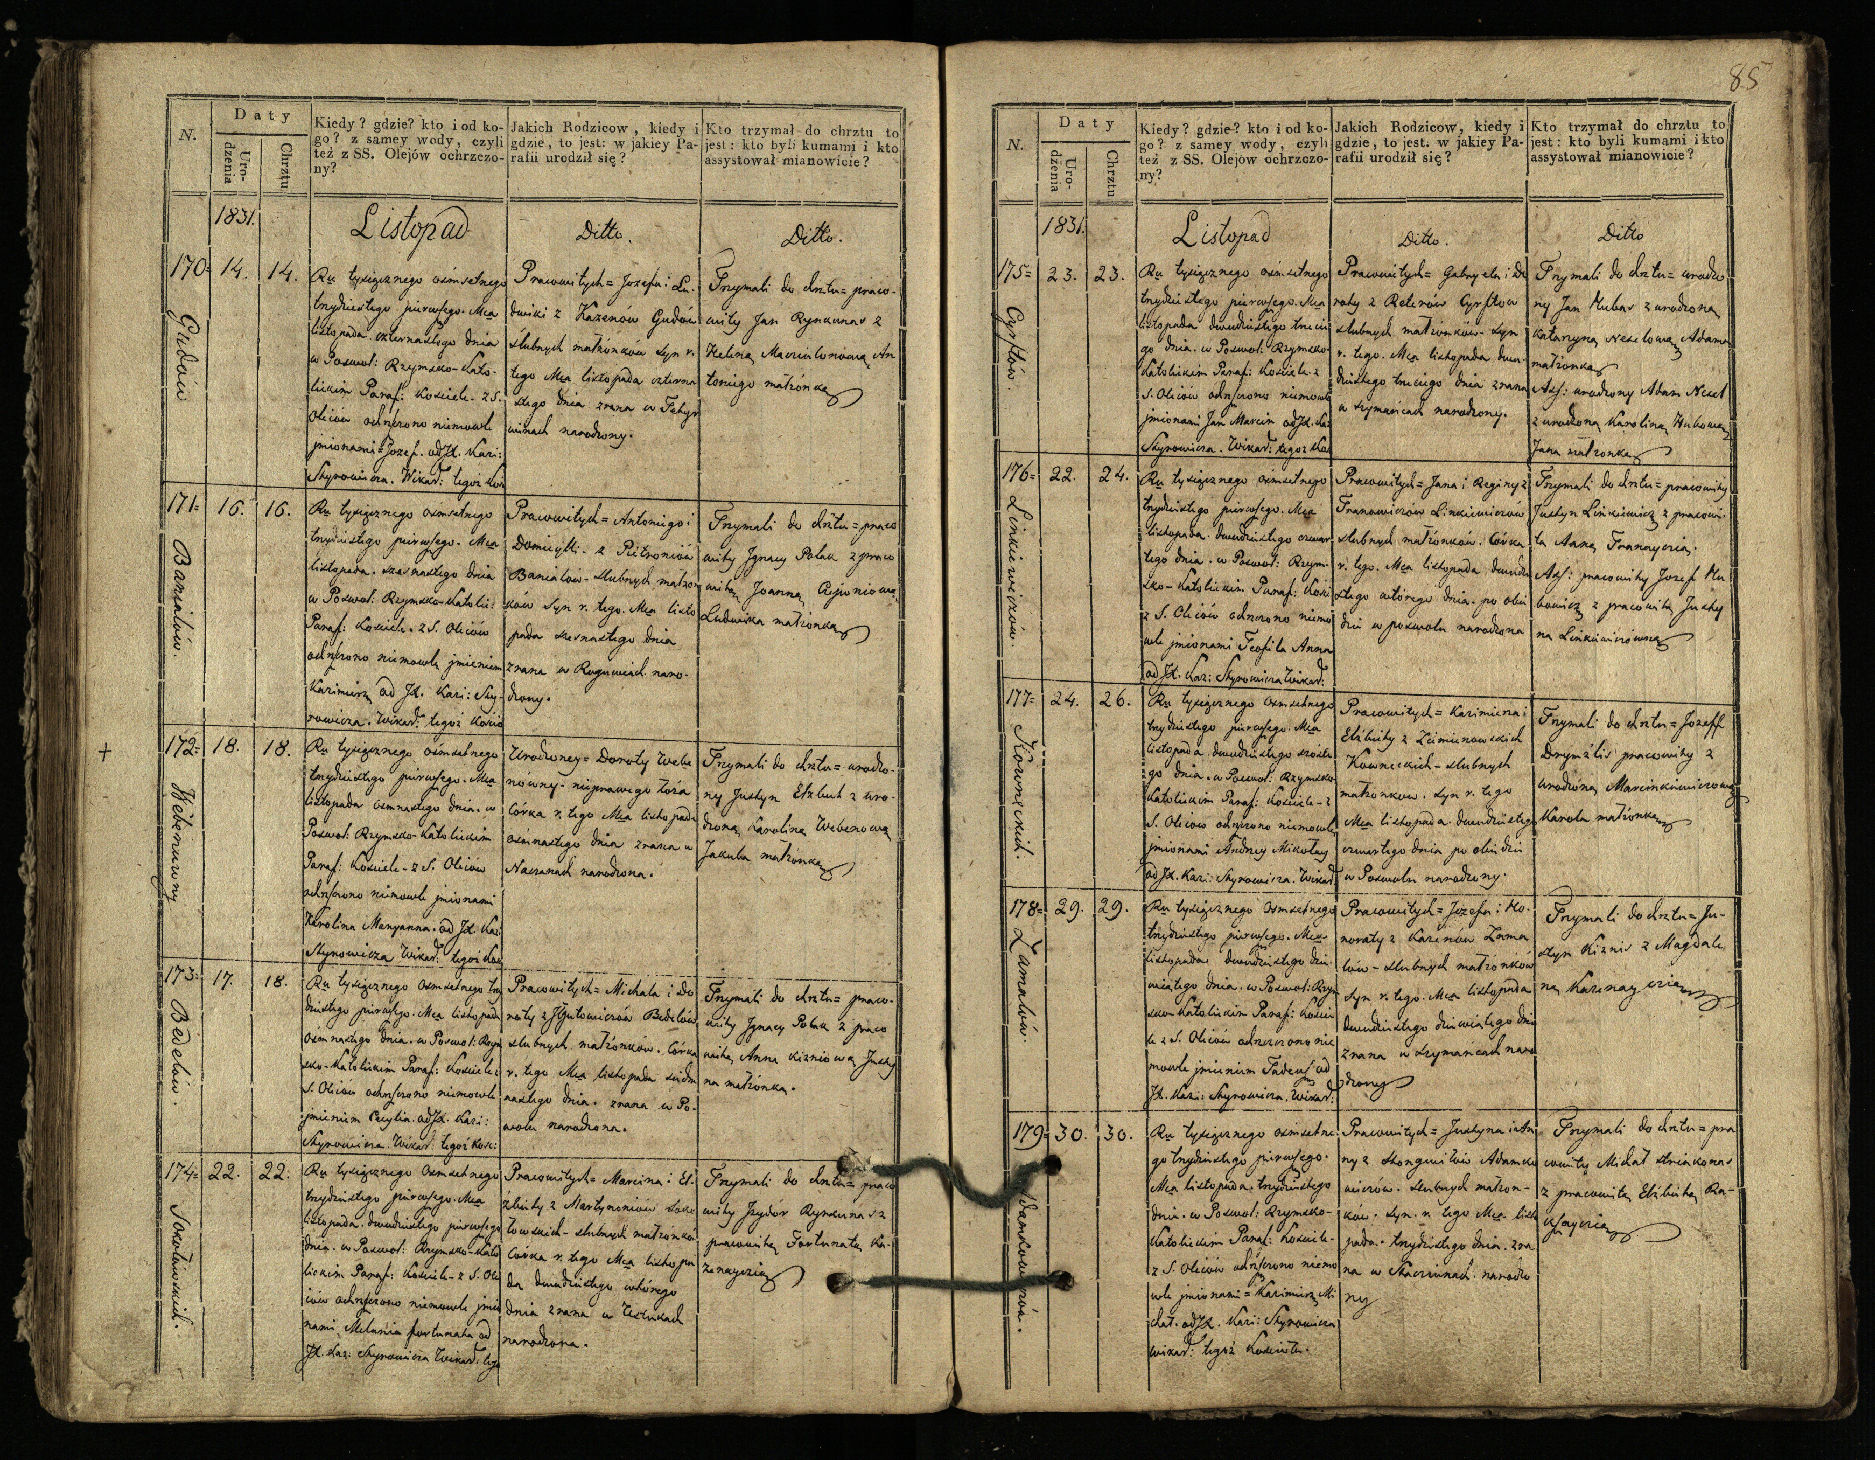 85
N.
Daty
Uro-
dzenia
Chrztu
Kiedy? gdzie? kto i od ko-
go? z samey wody, czyli
też z SS. Olejów ochrzczo-
ny?
Jakich Rodzicow, kiedy i
gdzie, to jest: w jakiey Pa-
rafii urodził się?
Kto trzymał do chrztu to
jest: kto byli kumami i kto
assystował mianowicie?
1831.
Listopad
Ditto.
Ditto.
170
14.
14.
Gudów
Ru tysiącznego ośmsetnego
trzydziestego pierwszego. Mca
listopada czternastego dnia
w Poswol: Rzymsko-Kato-
lickim Paraf: Kościele - z S.
Oleiów ochrzczono niemowle
jmionami = Jozef. od JX. Kazi:
Skyrowicza. Wikar: tegoż Koś
Pracowitych = Jozefa i Lu-
dwiki z Kazenów Gudów
slubnych małżonków syn r.
tego Mca listopada czterna
stego dnia zrana w
winach narodzony.
Trzymali do chrztu = praco-
wity Jan Rynkunas z
Heleną An
toniego małżonką
171
16.
16.
Banialów.
Ru tysiącznego osmsetnego
trzydziestego pierwszego. Mca
listopada. szesnastego dnia
w Poswol: Rzymsko-Katolic:
Paraf: Kościele. z S. Oleiów
ochrzczono niemowle jmieniem
Kazimierz od JX. Kazi: Sky-
rowicza. Wikar: tegoż Kościo
Pracowitych = Antoniego i
Domicelli. z Pietroniów
Banialów - slubnych małżon
ków syn r. tego. Mca listo
pada szesnastego dnia
zrana w Rogowiach naro-
dzony.
Trzymali do chrztu = praco
wity Jgnacy Polak z praco
witą Joanną
Ludwika małżonką
+
172
18.
18.
Weberuwny
Ru tysiącznego osmsetnego
trzydziestego pierwszego. Mca
listopada osmnastego dnia. w
Poswol: Rzymsko-Katolickim
Paraf: Kościele - z S. Oleiów
ochrzczono niemowle jmionami
Karolina Maryanna. od JX. Kaz:
Skyrowicza Wikar: tegoż Koś
Urodzoney = Doroty Webe
równey. nieprawego łoża
Córka r. tego Mca listopada
osmnastego dnia zrana w
Naciunach narodzona.
Trzymali do chrztu = urodzo-
ny Justyn Elzbut z uro-
dzoną Karoliną Weberową
Jakuba małżonką
173
17.
18.
Bedelów.
Ru tysiącznego osmsetnego trzy
dziestego pierwszego. Mca listopada
osmnastego dnia. w Poswol: Rzym
sko-Katolickim Paraf: Kościele z
S. Oleiów ochrzczono niemowle
jmieniem Cecylia. od JX. Kazi:
Skyrowicza. Wikar: tegoż Kośc:
Pracowitych = Michała i Do
roty z Bedelów
slubnych małżonków. Córka
r. tego Mca listopada siedm
nastego dnia. zrana w Po-
wolu narodzona.
Trzymali do chrztu = praco-
wity Jgnacy Polak z praco
witą Anną Kizniową Justy
na małżonką.
174
22.
22.
Sokołowskich.
Ru tysiącznego osmsetnego
trzydziestego pierwszego. Mca
listopada. dwudziestego pierwszego
dnia. w Poswol: Rzymsko-Kato
lickim Paraf: Kościele - z S. Ole
iów ochrzczono niemowle jmio
nami. Melania Fortunata od
JX. Kaz: Skyrowicza Wikar: tego
Pracowitych = Marcina i El-
żbiety z Martynoniów Soko
łowskich - slubnych małżonków
Córka r. tego Mca listopa
da dwudziestego wtórego
dnia zrana w
narodzona.
Trzymali do chrztu = praco
wity Jzydór Rynkunas z
pracowitą Fortunatą Ka-
zenaycią
N.
Daty
Uro-
dzenia
Chrztu
Kiedy? gdzie? kto i od ko-
go? z samey wody, czyli
też z SS. Olejów ochrzczo-
ny?
Jakich Rodzicow, kiedy i
gdzie, to jest. w jakiey Pa-
rafii urodził się?
Kto trzymał do chrztu to
jest: kto byli kumami i kto
assystował mianowicie?
1831.
Listopad
Ditto.
Ditto
175
23.
23.
Cyrstów.
Ru tysiącznego osmsetnego
trzydziestego pierwszego. Mca
listopada dwudziestego trzecie
go dnia. w Poswol: Rzymsko-
Katolickim Paraf: Kościele. z
S. Oleiów ochrzczono niemowle
jmionami Jan Marcin od JX. Ka
Skyrowicza. Wikar: tegoż Koś
Pracowitych = Gabryela i Do
roty z Reterów Cyrstów
slubnych małżonków - syn
r. tego. Mca listopada dwu-
dziestego trzeciego dnia zrana
w Szymańcach narodzony.
Trzymali do chrztu = urodzo
ny Jan Hubar z urodzoną
Katarzyną Neselową Adama
małżonką
Ass: urodzony Adam Nesel
z urodzoną Karoliną Hubową
Jana małżonką
176
22.
24.
Linkiewiczów.
Ru tysiącznego osmsetnego
trzydziestego pierwszego. Mca
listopada. dwudziestego czwar
tego dnia. w Poswol: Rzym-
sko-Katolickim Paraf: Kości
z S. Oleiów ochrzczono niemo
wle jmionami Teofila Anna
od JX. Kaz: Skyrowicza Wikar:
Pracowitych = Jana i Reginy z
Franowiczów Linkiewiczow
slubnych małżonków. Córka
r. tego. Mca listopada dwudzie
stego wtórego dnia. po obie
dzie w poswolu narodzona
Trzymali do chrztu = pracowity
Justyn Linkiewicz z pracowi-
tą Anną Frannycią.
Ass: pracowity Jozef Hu
bowicz z pracowitą Justy
ną Linkiewiczówną
177
24.
26.
Kowneckich.
Ru tysiącznego osmsetnego
trzydziestego pierwszego. Mca
listopada dwudziestego szóste
go dnia. w Poswol: Rzymsko
Katolickim Paraf: Kościele - z
S. Oleiów ochrzczono niemowle
jmionami Andrzey Mikołay
od JX. Kazi: Skyrowicza. Wikar:
Pracowitych = Kazimierza i
Elżbiety z
Kowneckich - slubnych
małżonkow. syn r. tego
Mca listopada. dwudziestego
czwartego dnia po obiedzie
w Poswolu narodzony.
Trzymali do chrztu = Jozeff
Drymżlis pracowity z
urodzoną Marcinkiewiczową
Karola małżonką
178
29.
29.
Zamalów.
Ru tysiącznego osmsetnego
trzydziestego pierwszego. Mca.
listopada. dwudziestego dzie
wiątego dnia. w Poswol: Rzym
sko-Katolickim Paraf: Kościo
le z S. Oleiów ochrzczono nie
mowle jmieniem Tadeusz od
JX. Kazi: Skyrowicza. Wikar:
Pracowitych = Jozefa i Ho-
noraty z Kazenów Zama
lów - slubnych małżonków
syn r. tego. Mca listopada
dwudziestego dziewiątego dnia
zrana w Szymańcach naro
dzony
Trzymali do chrztu = Ju-
styn Kiznis z Magdale
ną Kazenaycią
179
30.
30.
Adamkowiczów.
Ru tysiącznego osmsetne-
go trzydziestego pierwszego.
Mca listopada. trzydziestego
dnia. w Poswol: Rzymsko-
Katolickim Paraf: Kościele-
z S. Oleiów ochrzczono niemo
wle jmionami = Kazimierz Mi
chał. od JX. Kazi: Skyrowicza
Wikar: tegoż Kościoła.
Pracowitych = Justyna i An
ny z Adamko
wiczów. slubnych małżon-
ków. syn. r. tego Mca listo
pada. trzydziestego dnia. zra
na w narodzo
ny
Trzymali do chrztu = pra
cowity Michał
z pracowitą Elżbietą Ra-